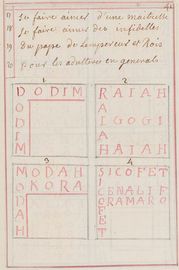 17 Se faire aimer d'une maitresse
18 Se faire aimer des infidelles
19 Du pape de Lempereur et Rois
20 Pour les adulteres en general
1
DODIM
O
D
I
M
2
RAIAH
A
IGOGI
A
HAIAH
3
MODAH
OKORA
D
A
H
4
SICOFET
CENALIF
ORAMARO
F
E
T